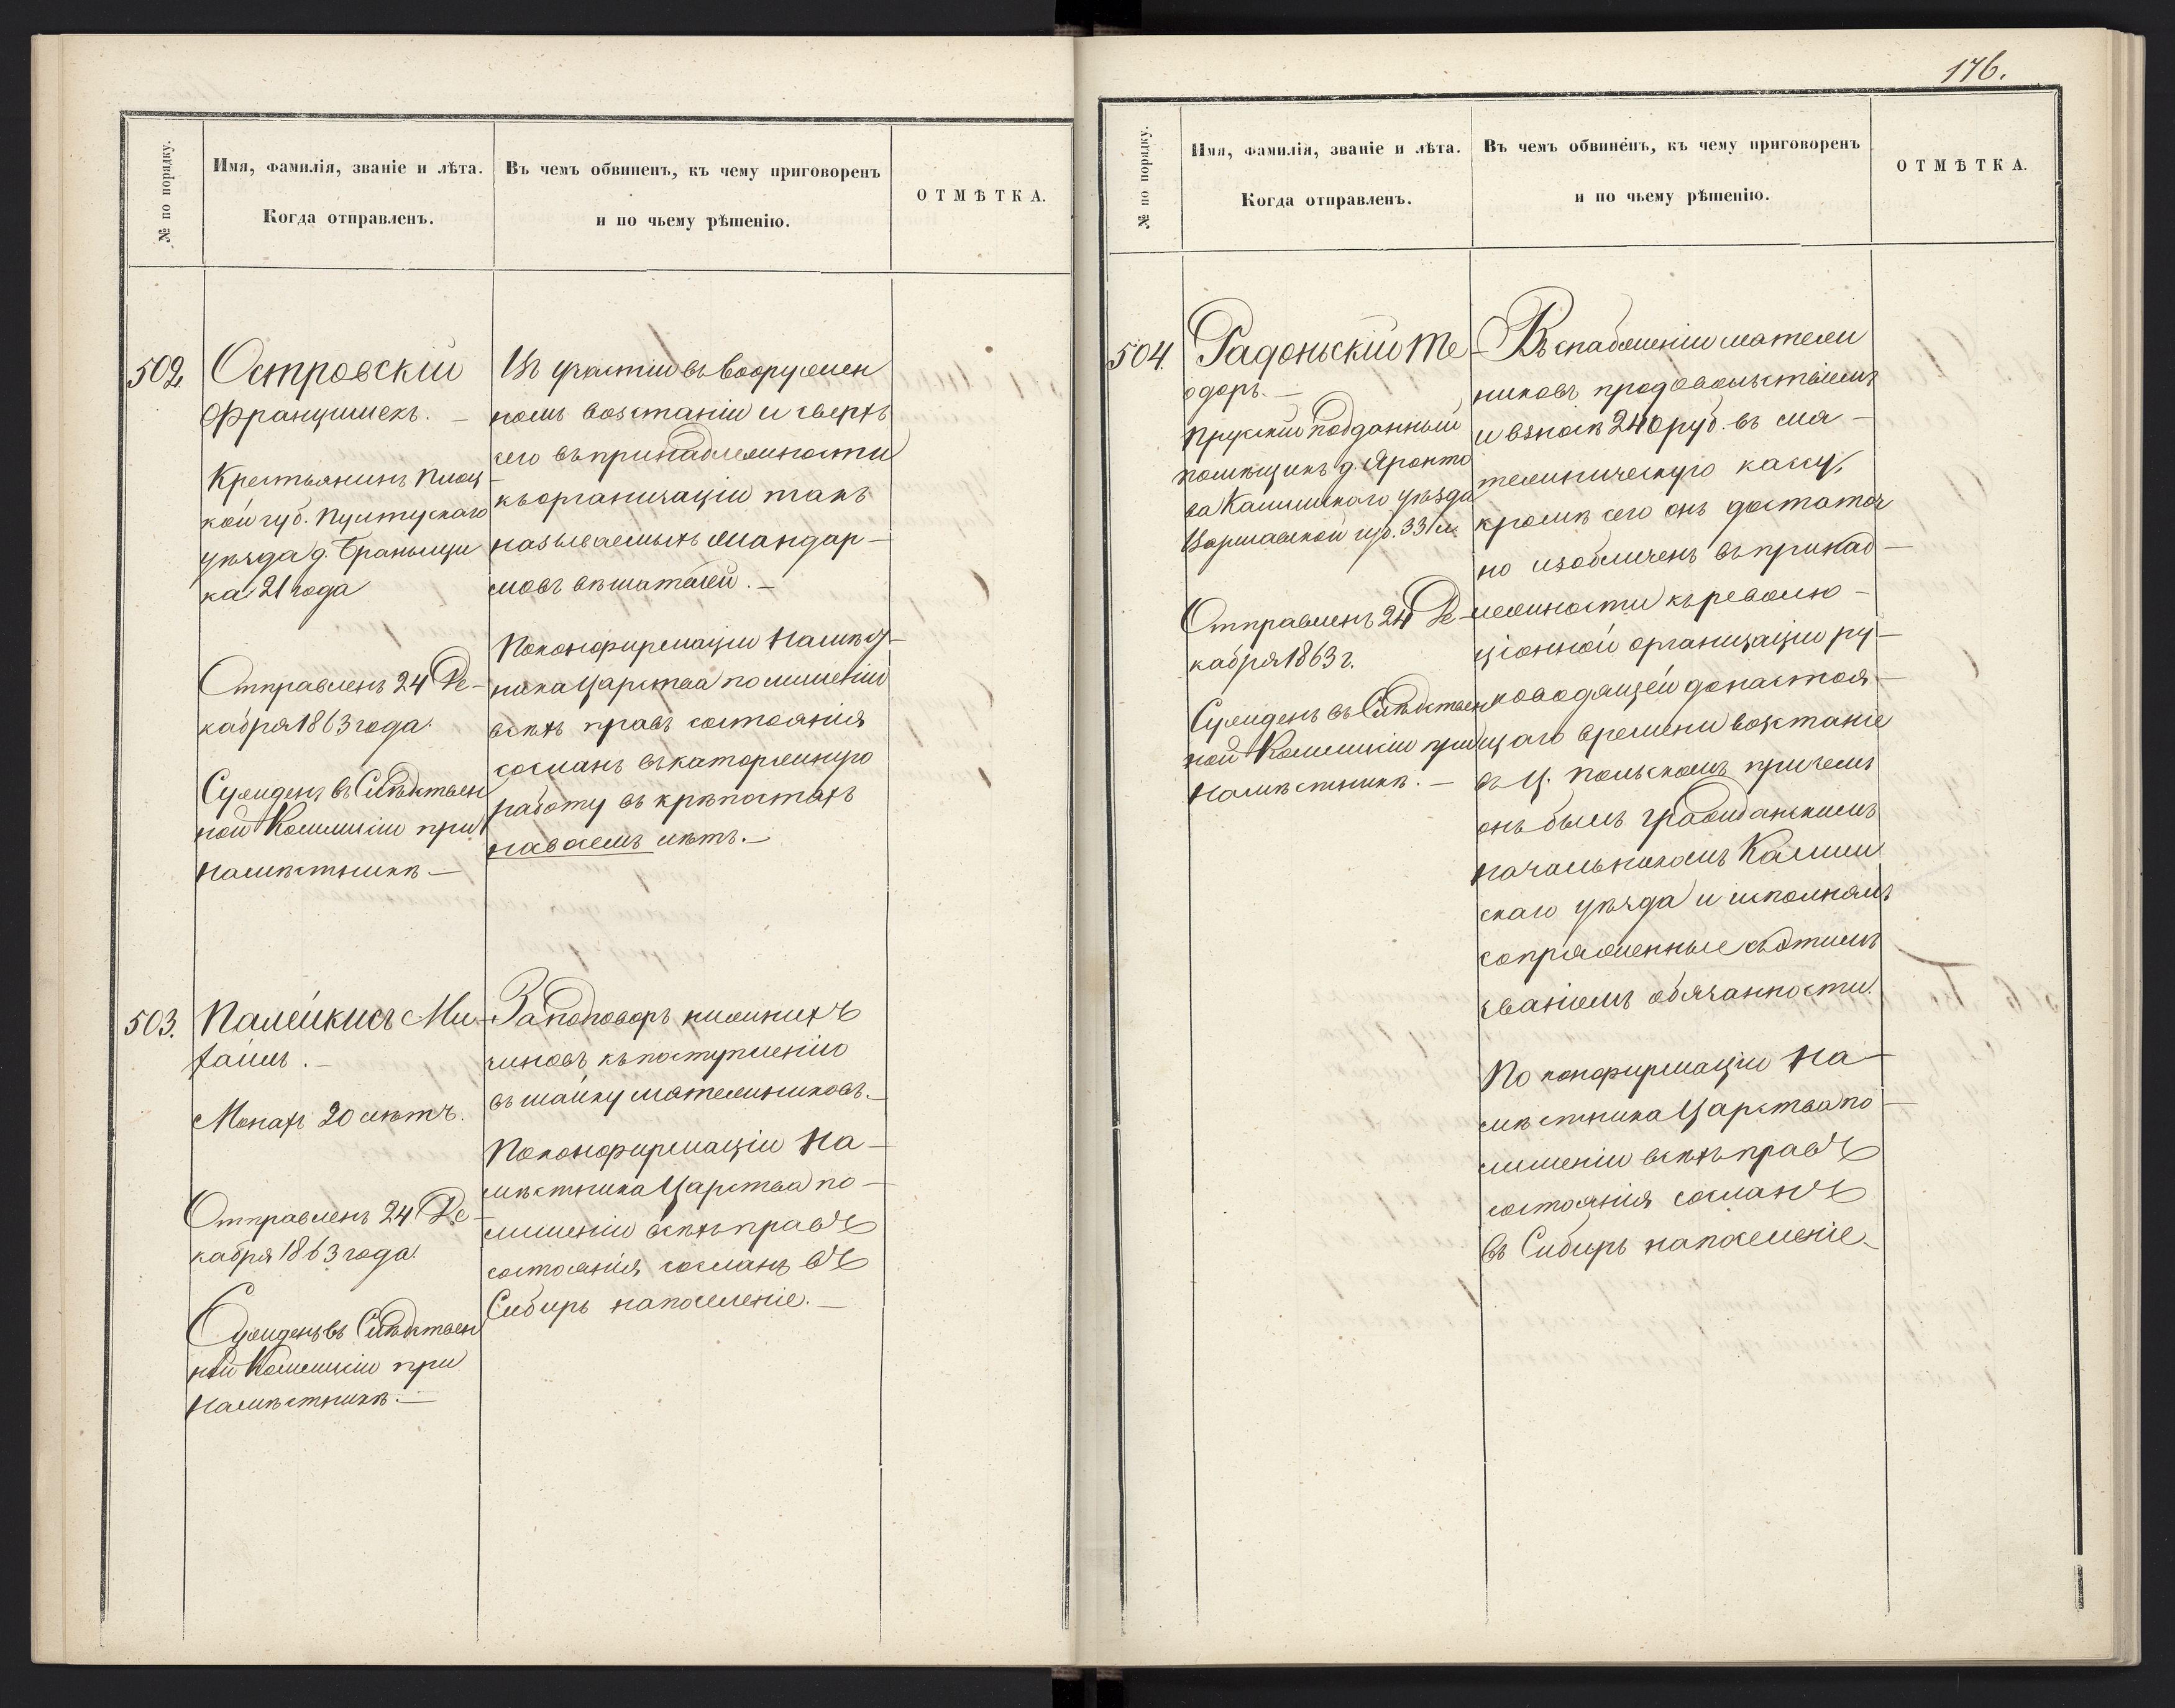 № по порядку.
Имя, фамилія, званіе и лѣта.
Когда отправленъ.
Въ чемъ обвиненъ, къ чему приговоренъ
и по чьему рѣшенію.
ОТМѢТКА.
502.
Островскій
Францишекъ. —
Крестьянинъ Плоц-
кой губ. Пултускаго
уѣзда д. Браньщи
ка 21 года
Отправленъ 24 Де-
кабря 1863 года.
Сужденъ въ Слѣдствен
ной Коммисіи при
Намѣстникѣ. —
Въ участіи въ вооружен
номъ возстаніи и сверхъ
сего въ принадлежности
къ организаціи такъ
называемыхъ жандар-
мовъ вѣшателей. —
По конфирмаціи Намѣст-
ника Царства по лишеніи
всѣхъ правъ состоянія
сосланъ въ каторжную
работу въ крѣпостяхъ
на восемь лѣтъ. —
503.
Палейкисъ Ми-
хаилъ. —
Монахъ 20 лѣтъ.
Отправленъ 24 Де-
кабря 1863 года.
Сужденъ въ Слѣдствен
ной Коммисіи при
Намѣстникѣ. —
За подговоръ нижнихъ
чиновъ къ поступленію
въ шайку мятежниковъ. —
По конфирмаціи На-
мѣстника Царства по-
лишеніи всѣхъ правъ
состоянія сосланъ въ
Сибирь на поселеніе. —
176.
№ по порядку.
Имя, фамилія, званіе и лѣта.
Когда отправленъ.
Въ чемъ обвиненъ, къ чему приговоренъ
и по чьему рѣшенію.
ОТМѢТКА.
504.
Радоньскій Те-
одоръ. —
Прусскій подданный
помѣщикъ д.
ва Калишскаго уѣзда
Варшавской губ. 33 л.
Отправленъ 24 Де-
кабря 1863 г.
Сужденъ въ Слѣдствен
ной Коммисіи при
Намѣстникѣ. —
Въ снабженіи мятежн
никовъ продовольствіемъ
и взносѣ 240 руб. въ мя-
тежническую кассу,
кромѣ сего онъ достаточ
но изобличенъ въ принад-
лежности къ револю-
ціонной организаціи ру-
ководящей до настоя-
щаго времени возстаніе
въ Ц. Польскомъ причемъ
онъ былъ гражданскимъ
начальникомъ Калиш
скаго уѣзда и исполнялъ
сопряженные съ этимъ
званіемъ обязанности.
По конфирмаціи На-
мѣстника Царства по-
лишеніи всѣхъ правъ
состоянія сосланъ
въ Сибирь на поселеніе. —